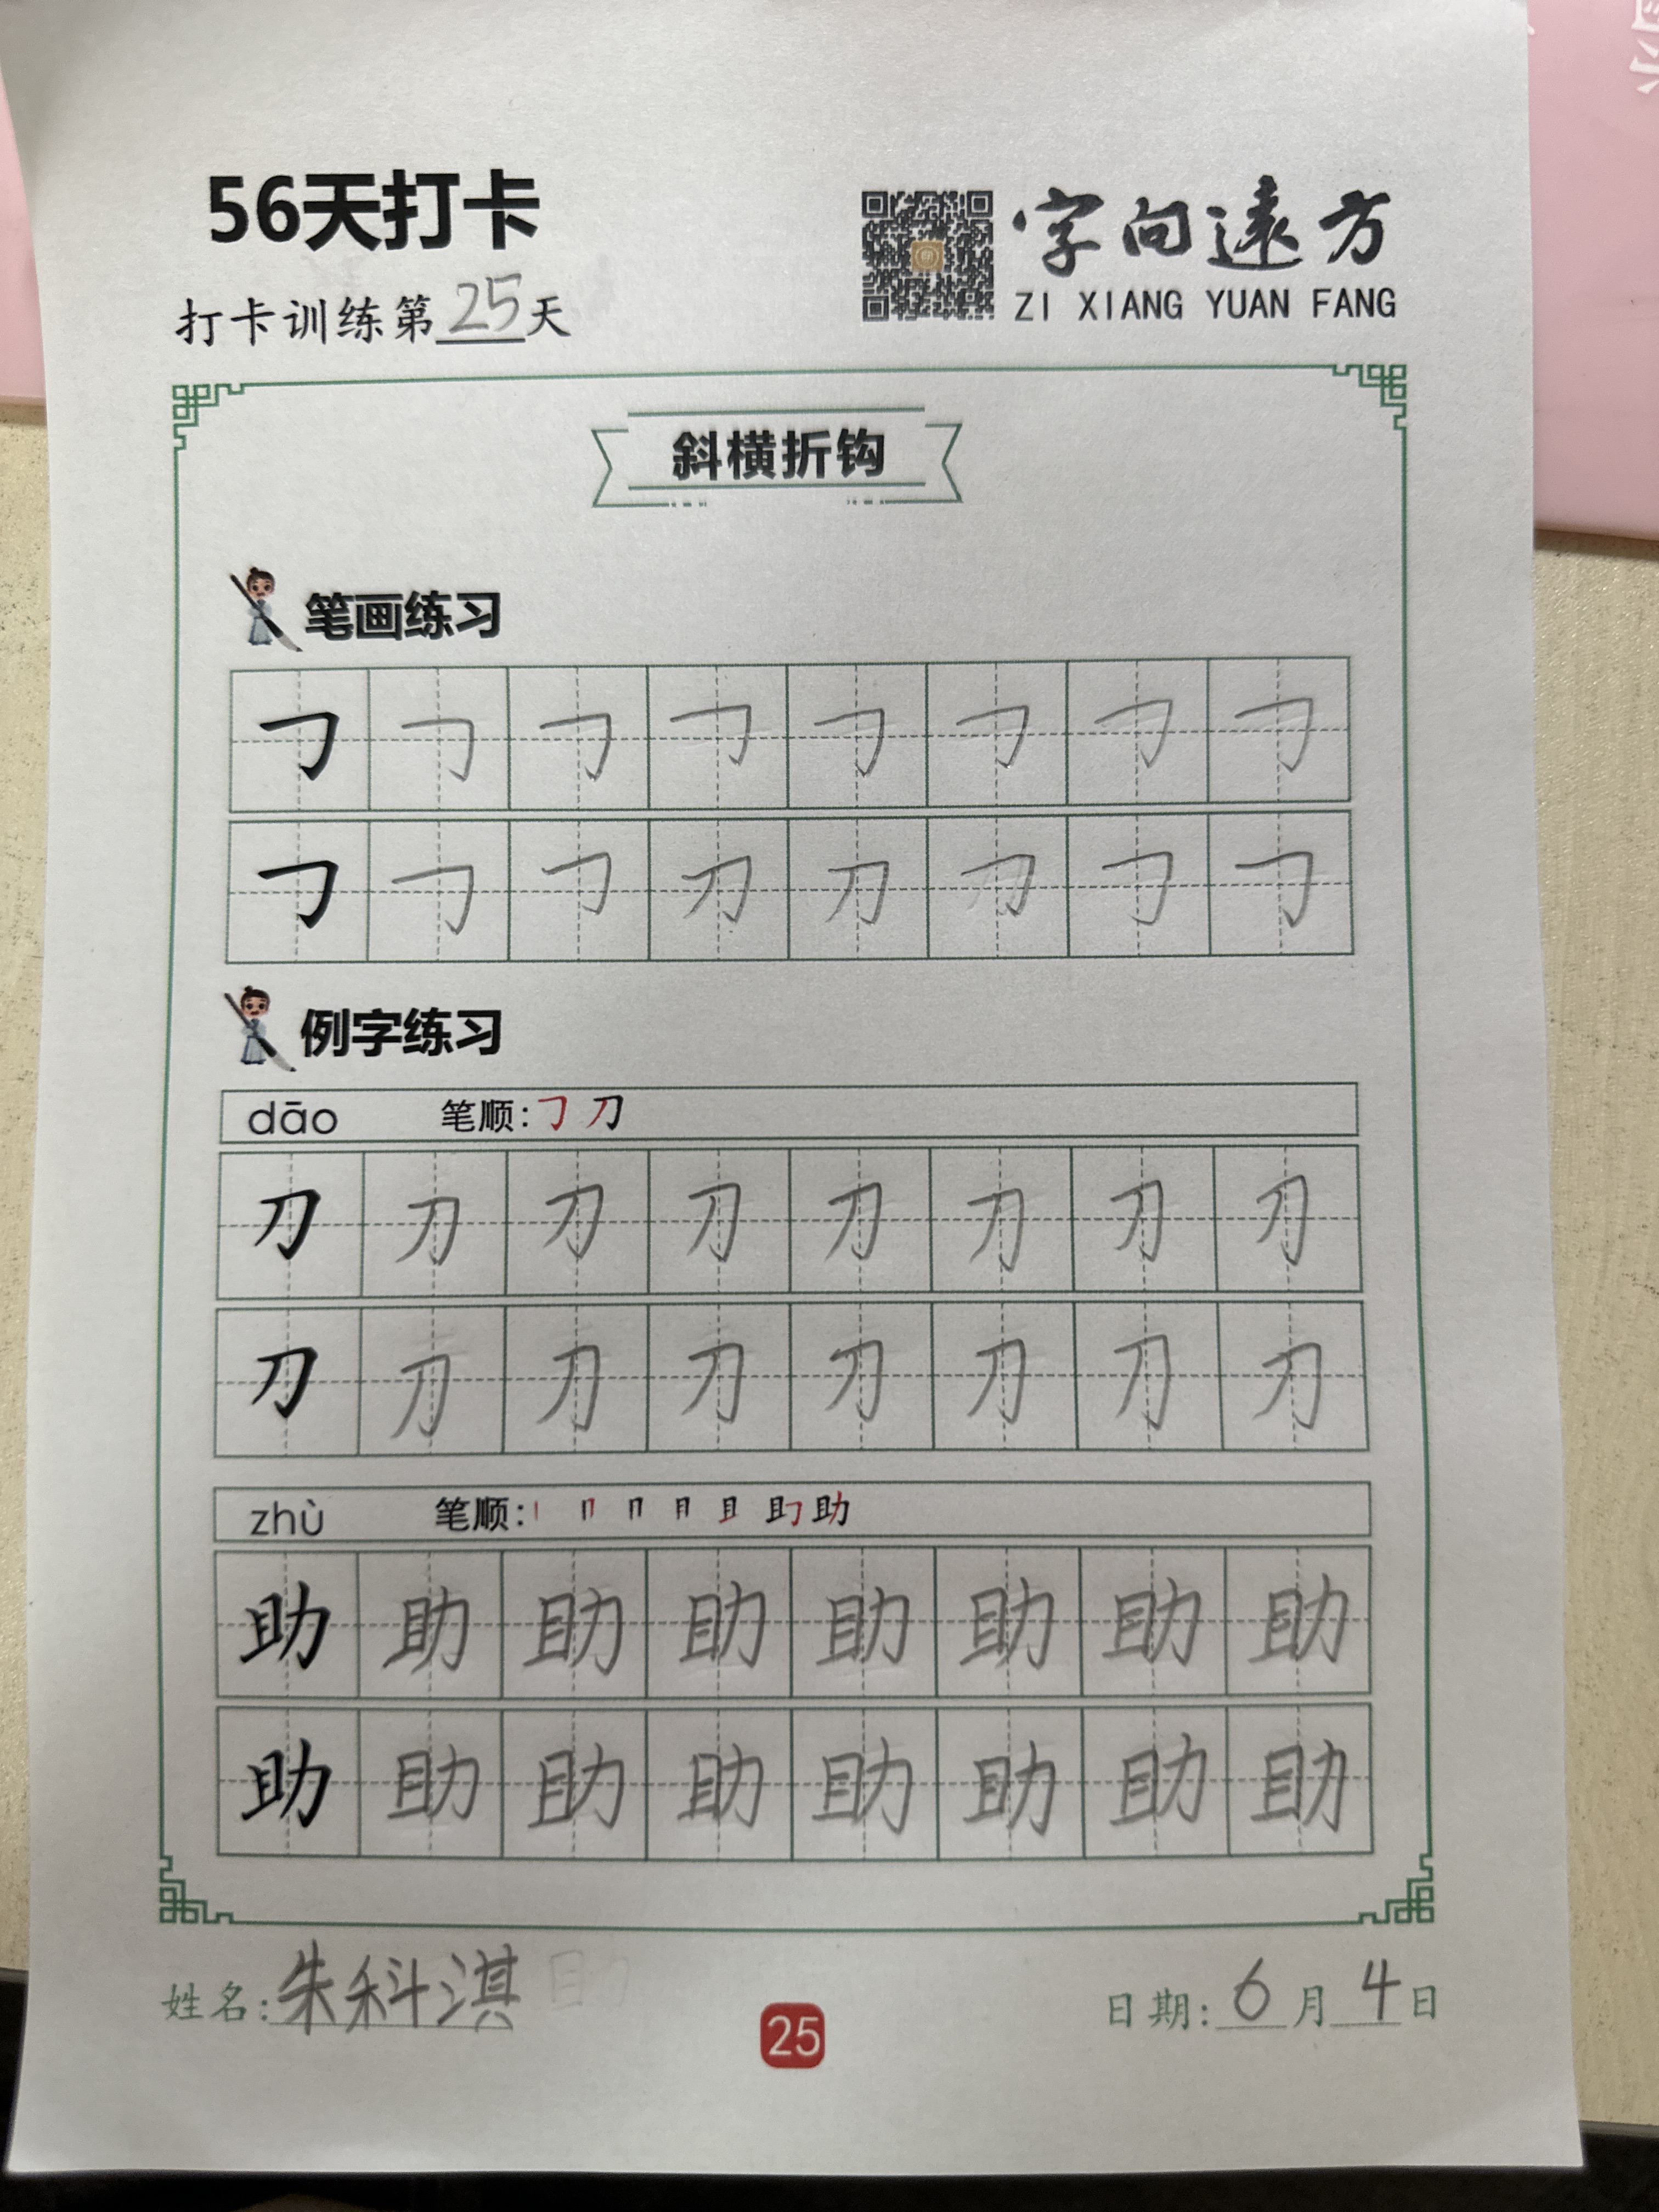 56天打卡
字向遠方
打卡训练第25天
ZI XIANG YUAN FANG
斜横折钩
笔画练习
㇆ ㇆ ㇆ ㇆ ㇆ ㇆ ㇆ ㇆
㇆ ㇆ ㇆ 刀 刀 刀 ㇆ ㇆
例字练习
dāo 笔顺: ㇆ 刀
刀 刀 刀 刀 刀 刀 刀 刀
刀 刀 刀 刀 刀 刀 刀 刀
zhù 笔顺: 丨 冂 冂 月 且 助
助 助 助 助 助 助 助 助
助 助 助 助 助 助 助 助
姓名:朱科淇 日期:6月4日
25